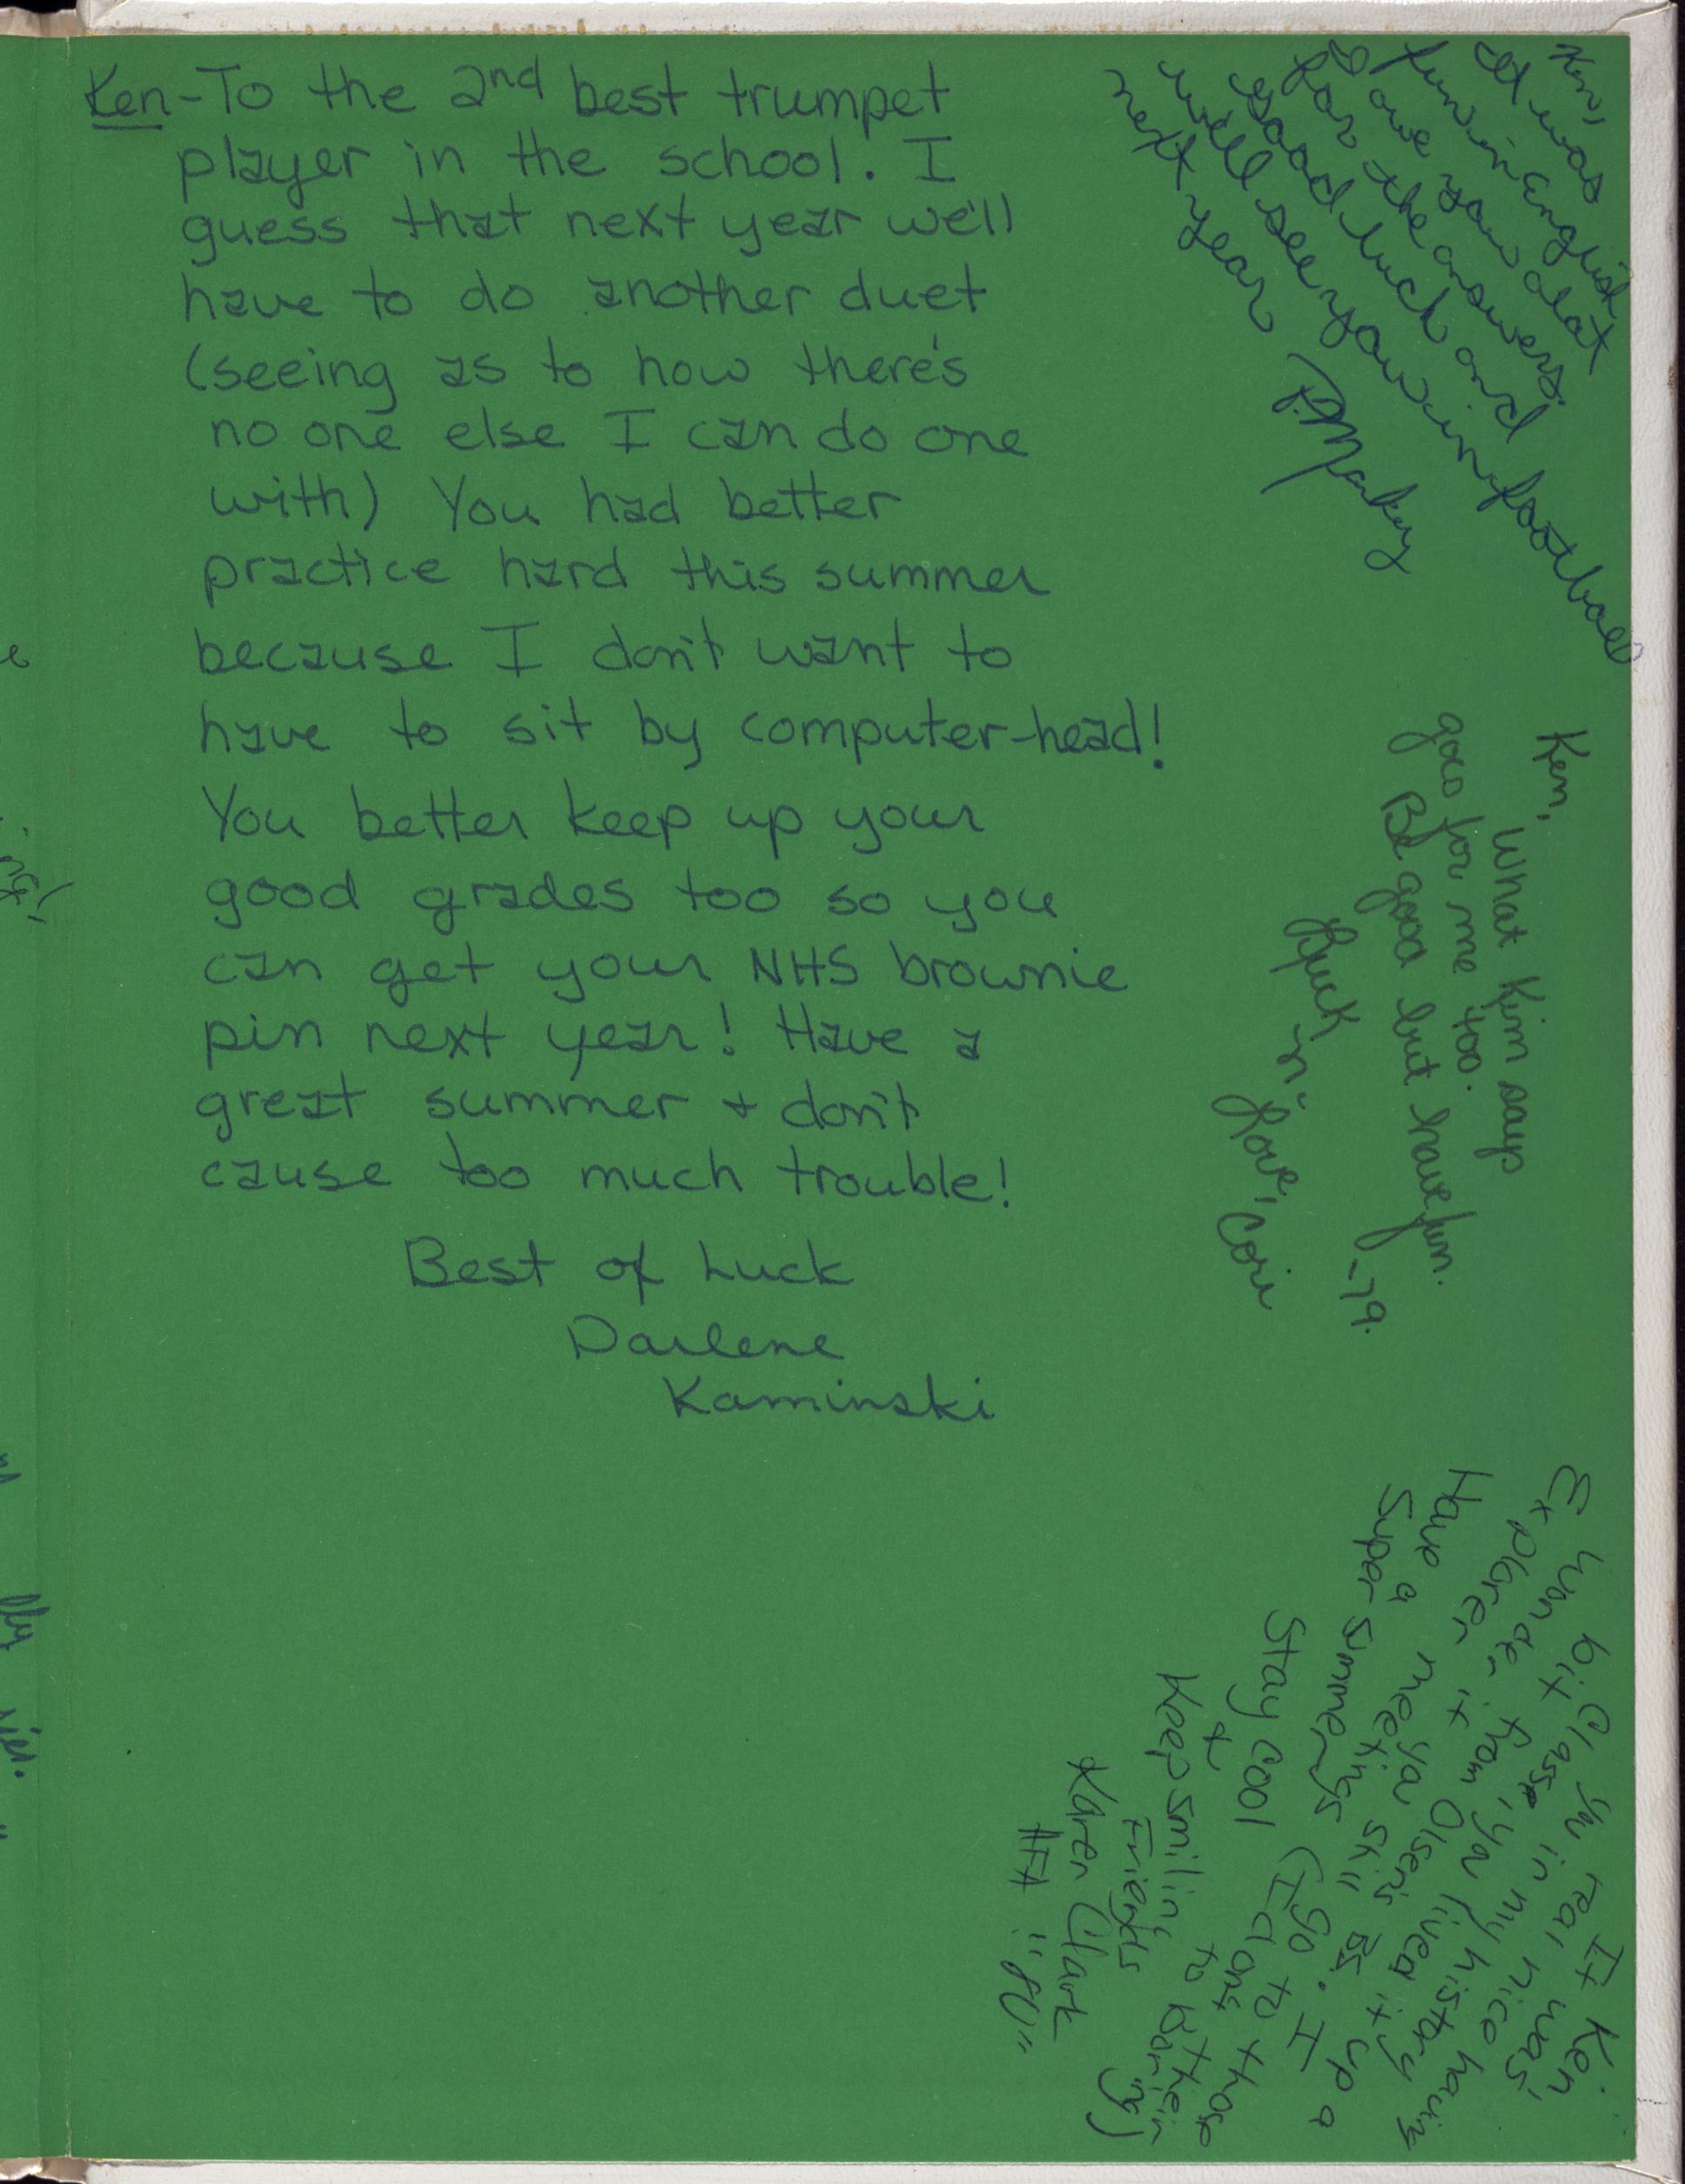 Ken-To the 2nd best trumpet
player in the school. I
guess that next year we'll
have to do another duet
(seeing as to how there's
no one else I can do one
with) You had better
practice hard this summer
because I don't want to
have to sit by computer-head!
You better keep up your
good grades too so you
can get your NHS brownie
pin next year! Have a
great summer + don't
cause too much trouble!
Best of Luck
Darlene
Kaminski
Ken,
It was
fun in English
I owe you alot
for the answers.
Good luck and
will see you in football
next year
P. Markey
Ken,
What Kim says
goes for me too.
Be good but have fun.
-79.
Luck -n- Love,
Cori
Ken
It was
real nice
having
ya in my history
class
Have a
Super Summer
Stay Cool
+
Keep Smilin'
Friends
Karen Clark
HFA "80"